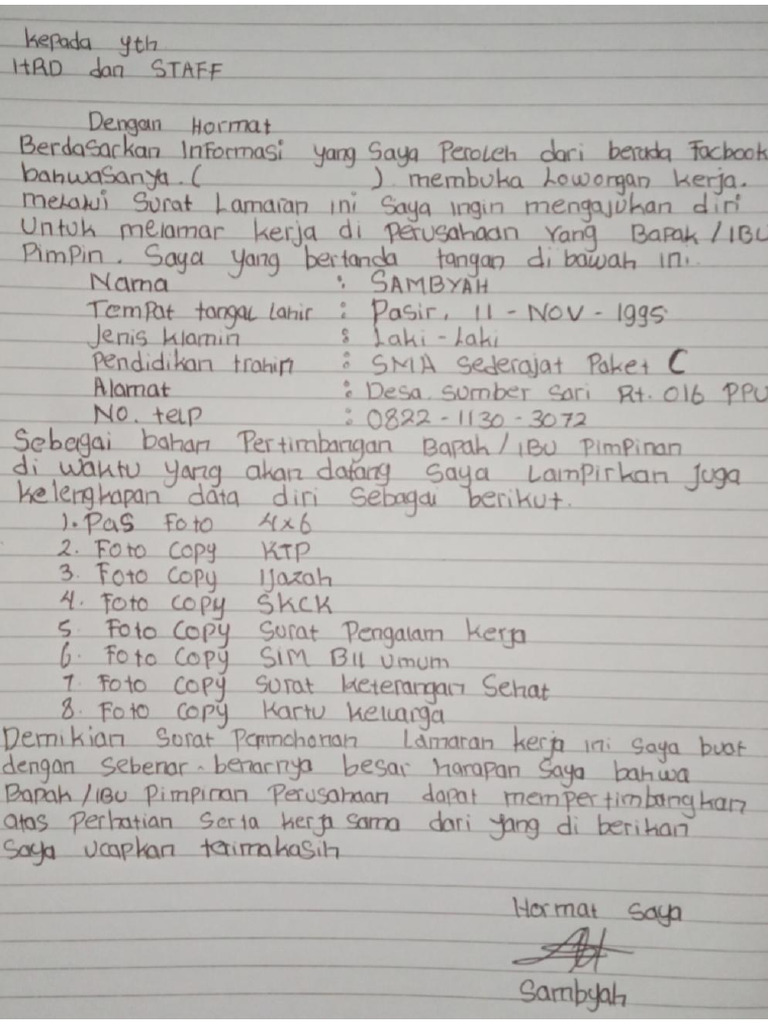 kepada yth
HRD dan STAFF
Dengan Hormat
Berdasarkan Informasi yang Saya Peroleh dari beruda Facbook
bahwasanya. ( ) membuka Lowongan kerja.
melalui Surat Lamaran ini Saya ingin mengajukan diri
Untuk melamar kerja di perusahaan Yang Bapak / IBU
Pimpin. Saya yang bertanda tangan di bawah ini.
Nama : SAMBYAH
Tempat tangal lahir : Pasir, 11 - NOV - 1995
Jenis Klamin : Laki - Laki
Pendidikan trahir : SMA Sederajat Paket C
Alamat : Desa. Sumber Sari Rt. 016 PPU
NO. telp : 0822 - 1130 - 3072
Sebagai bahan Pertimbangan Bapak / IBU Pimpinan
di waktu yang akan datang Saya Lampirkan Juga
Kelengkapan data diri Sebagai berikut.
1. Pas Foto 4x6
2. Foto Copy KTP
3. Foto Copy IJazah
4. Foto Copy SKCK
5. Foto Copy Surat Pengalam Kerja
6. Foto Copy SIM BII Umum
7. Foto Copy Surat Keterangan Sehat
8. Foto Copy Kartu Keluarga
Demikian Surat Permohonan Lamaran kerja ini Saya buat
dengan Sebenar - benarnya besar harapan Saya bahwa
Bapak / IBU Pimpinan Perusahaan dapat mempertimbangkan
atas Perhatian Serta kerja Sama dari yang di berikan
Saya ucapkan terimakasih
Hormat Saya
Sambyah